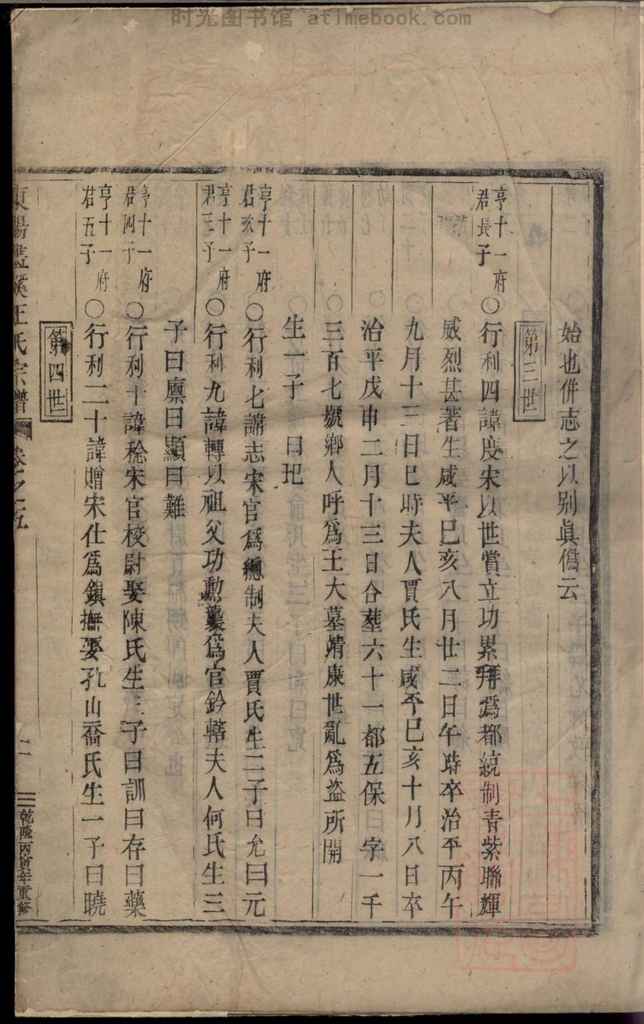 时光图书馆 - atimebook.com
始也併志之以别眞僞云
第三世
亨十一府君長子 ○行利四諱度宋以世賞立功累拜爲都統制青紫聯輝
威烈甚著生咸平巳亥八月廿二日午時卒治平丙午
九月十三日巳時夫人賈氏生咸平巳亥十月八日卒
治平戊申二月十三日合塟六十一都五保 字一千
三百七號鄉人呼爲王大墓靖康世亂爲盜所開
生一子 曰玘
亨十一府君次子 ○行利七諱志宋官爲總制夫人賈氏生二子曰允曰元
亨十一府君三子 ○行利九諱轉以祖父功勳襲爲官鈐轄夫人何氏生三
子曰廪曰顯曰難
亨十一府君四子 ○行利十諱稔宋官校尉娶陳氏生三子曰訓曰存曰藥
亨十一府君五子 ○行利二十諱贈宋仕爲鎮撫娶孔山喬氏生一子曰曉
第四世
王氏宗譜 卷之五
乾隆丙重修